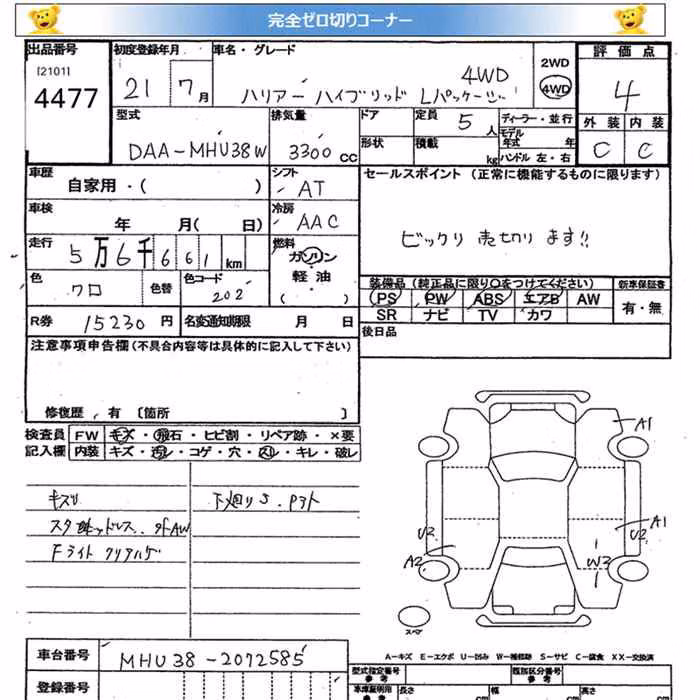 完全ゼロ切りコーナー
出品番号
[2101]
4477
初度登録年月
21 7月
車名・グレード
4WD
ハリアー ハイブリッド Lパッケージ
2WD
4WD
評価点
4
外装 内装
C C
型式
DAA-MHU38W
排気量
3300 CC
ドア
形状
定員 5 人
積載 kg
ディーラー・並行
モデル年式 年
ハンドル 左・右
車歴
自家用・( )
シフト
AT
車検
年 月( 日)
冷房
AAC
セールスポイント (正常に機能するものに限ります)
ビックリ 売切り ます!!
走行
5万6千661km
燃料
ガソリン
軽油
( )
色
クロ
色替
色コード
202
装備品 (純正品に限り○をつけてください)
PS PW ABS エアB AW
SR ナビ TV カワ
新車保証書
有・無
R券 15230円
名変通知期限 月 日
後日品
注意事項申告欄(不具合内容等は具体的に記入して下さい)
修復歴 有 〔箇所 〕
検査員
記入欄
FW キズ・飛石・ヒビ割・リペア跡・×要
内装 キズ・汚レ・コゲ・穴・スレ・キレ・破レ
キズリ
スタッドレス
Fライト クリアハゲ
下廻りS.Pサト
A1
A1
U2
U2
A2
W3
スペア
A―キズ E―エクボ U―凹み W―補修跡 S―サビ C―腐食 XX―交換済
車台番号
MHU38-2072585
登録番号
型式指定番号
参考
類別区分番号
参考
車庫証明用
参考
長さ cm
幅 cm
高さ cm